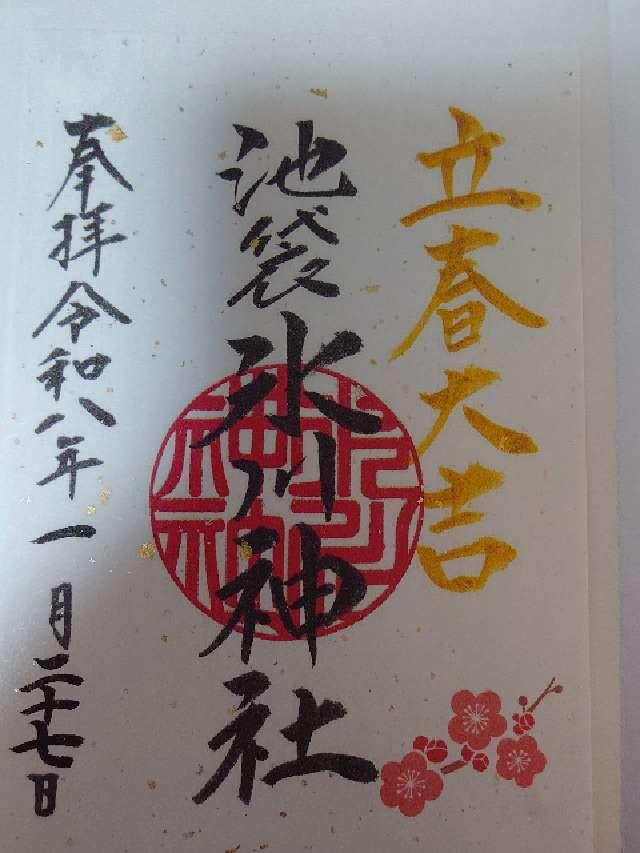 立春大吉
池袋氷川神社
奉拝令和八年一月二十七日